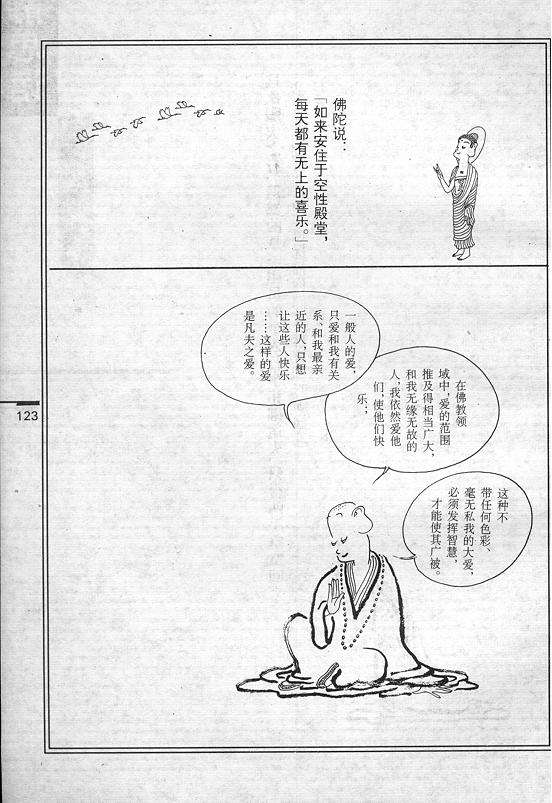 佛陀说：
「如来安住于空性殿堂，
每天都有无上的喜乐。」
一般人的爱，
只爱和我有关
系、和我最亲
近的人，只想
让这些人快乐
……这样的爱
是凡夫之爱。
在佛教领
域中，爱的范围
推及得相当广大，
和我无缘无故的
人，我依然爱他
们，使他们快
乐；
这种不
带任何色彩、
毫无私我的大爱，
必须发挥智慧，
才能使其广被。
123